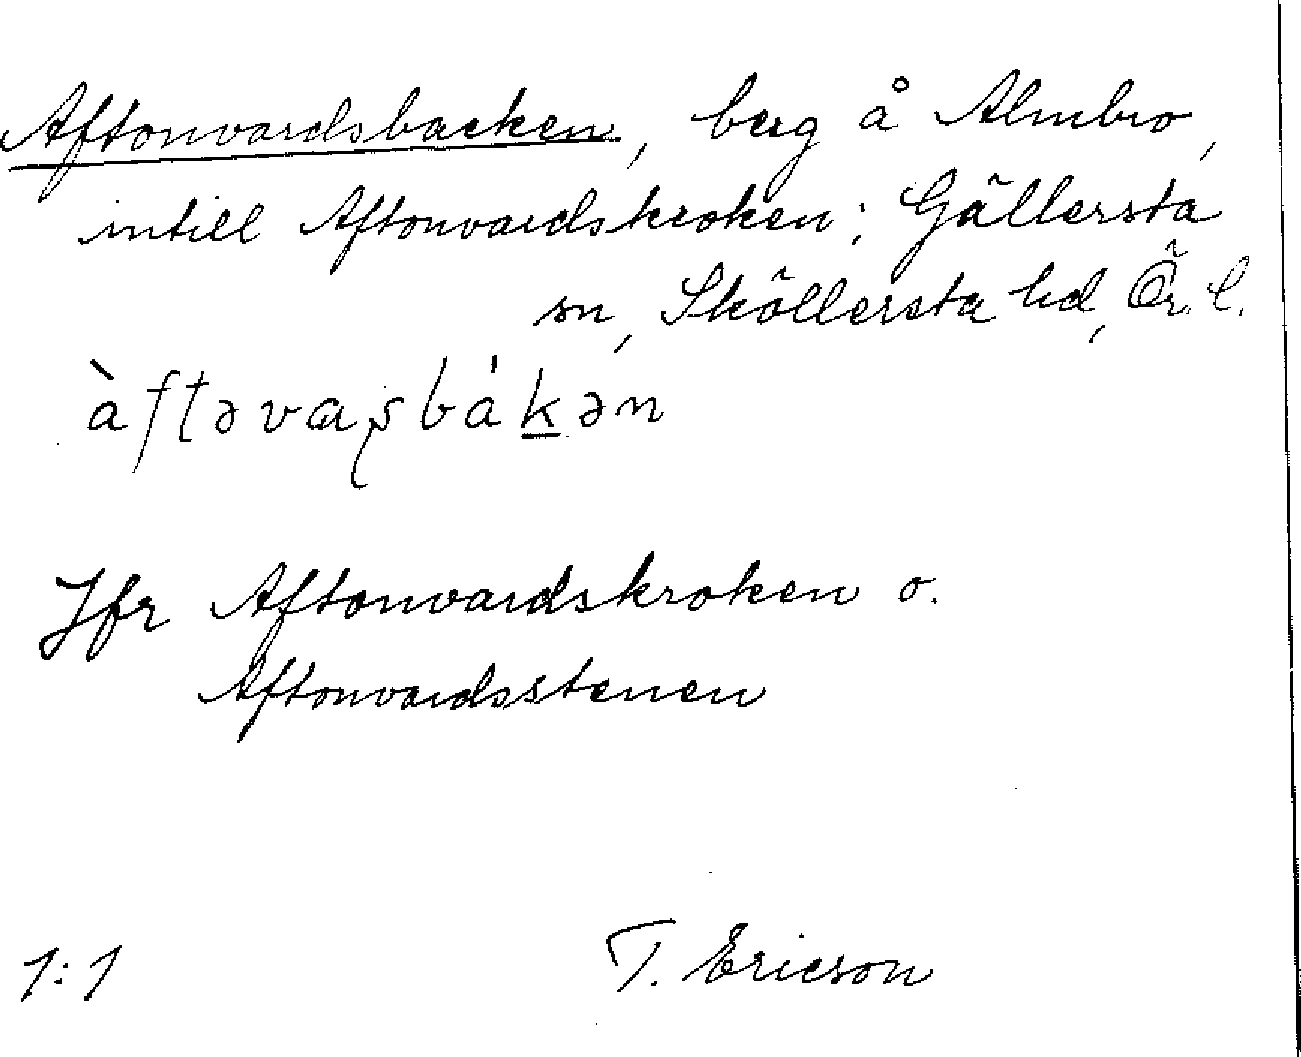 Aftonvardsbacken, berg å Almbro,
intill Aftonvardskroken; Gällersta
sn, Sköllersta hd, Ör. l.
àftəvaʂbák̲ən
Jfr Aftonvardskroken o.
Aftonvardsstenen
1:1 T. Ericson